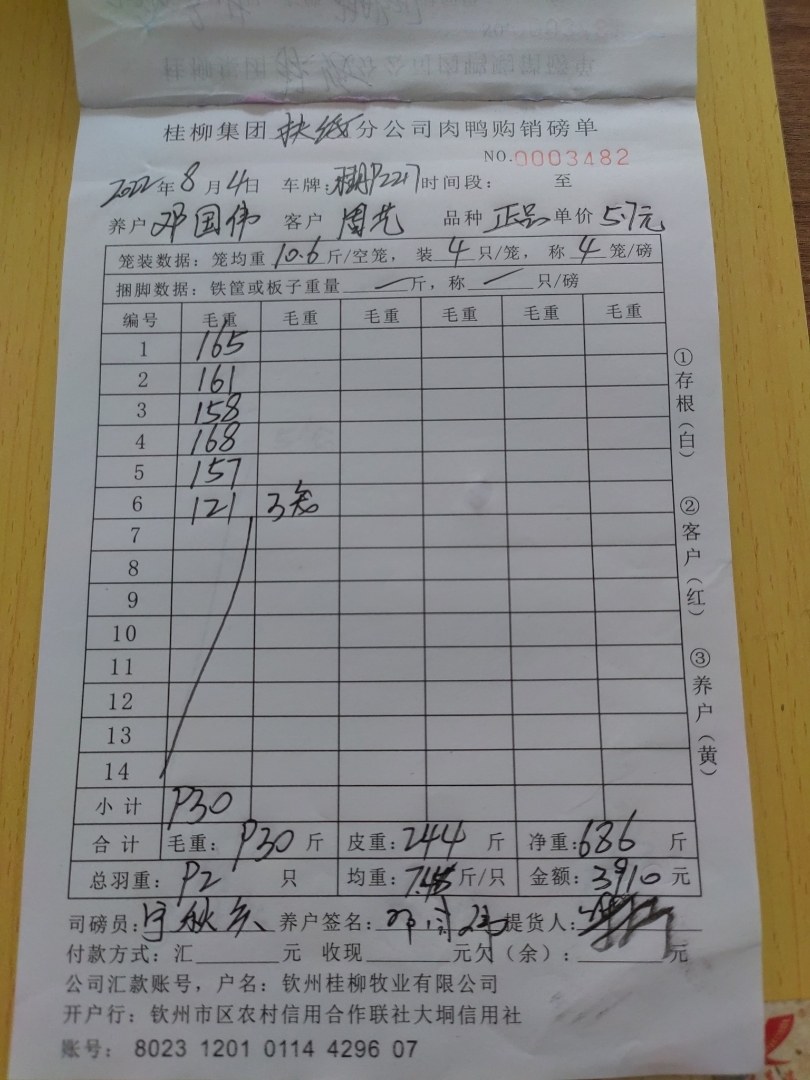 桂柳集团扶绥分公司肉鸭购销磅单
NO.0003482
2022年8月4日 车牌: 时间段: 至
养户 邓国伟 客户 周芳 品种 正品 单价 5.7元
笼装数据: 笼均重 10.6 斤/空笼, 装 4 只/笼, 称 4 笼/磅
捆脚数据: 铁筐或板子重量 — 斤, 称 — 只/磅
编号 毛重 毛重 毛重 毛重 毛重 毛重
1 165
2 161
3 158
4 168
5 157
6 121 3笼
7
8
9
10
11
12
13
14
小计 930
合计 毛重: 930 斤 皮重: 244 斤 净重: 686 斤
总羽重: 92 只 均重: 7.45 斤/只 金额: 3910 元
①存根(白)
②客户(红)
③养户(黄)
司磅员: 养户签名: 邓国伟 提货人:
付款方式: 汇 元 收现 元欠(余): 元
公司汇款账号, 户名: 钦州桂柳牧业有限公司
开户行: 钦州市区农村信用合作联社大垌信用社
账号: 8023 1201 0114 4296 07